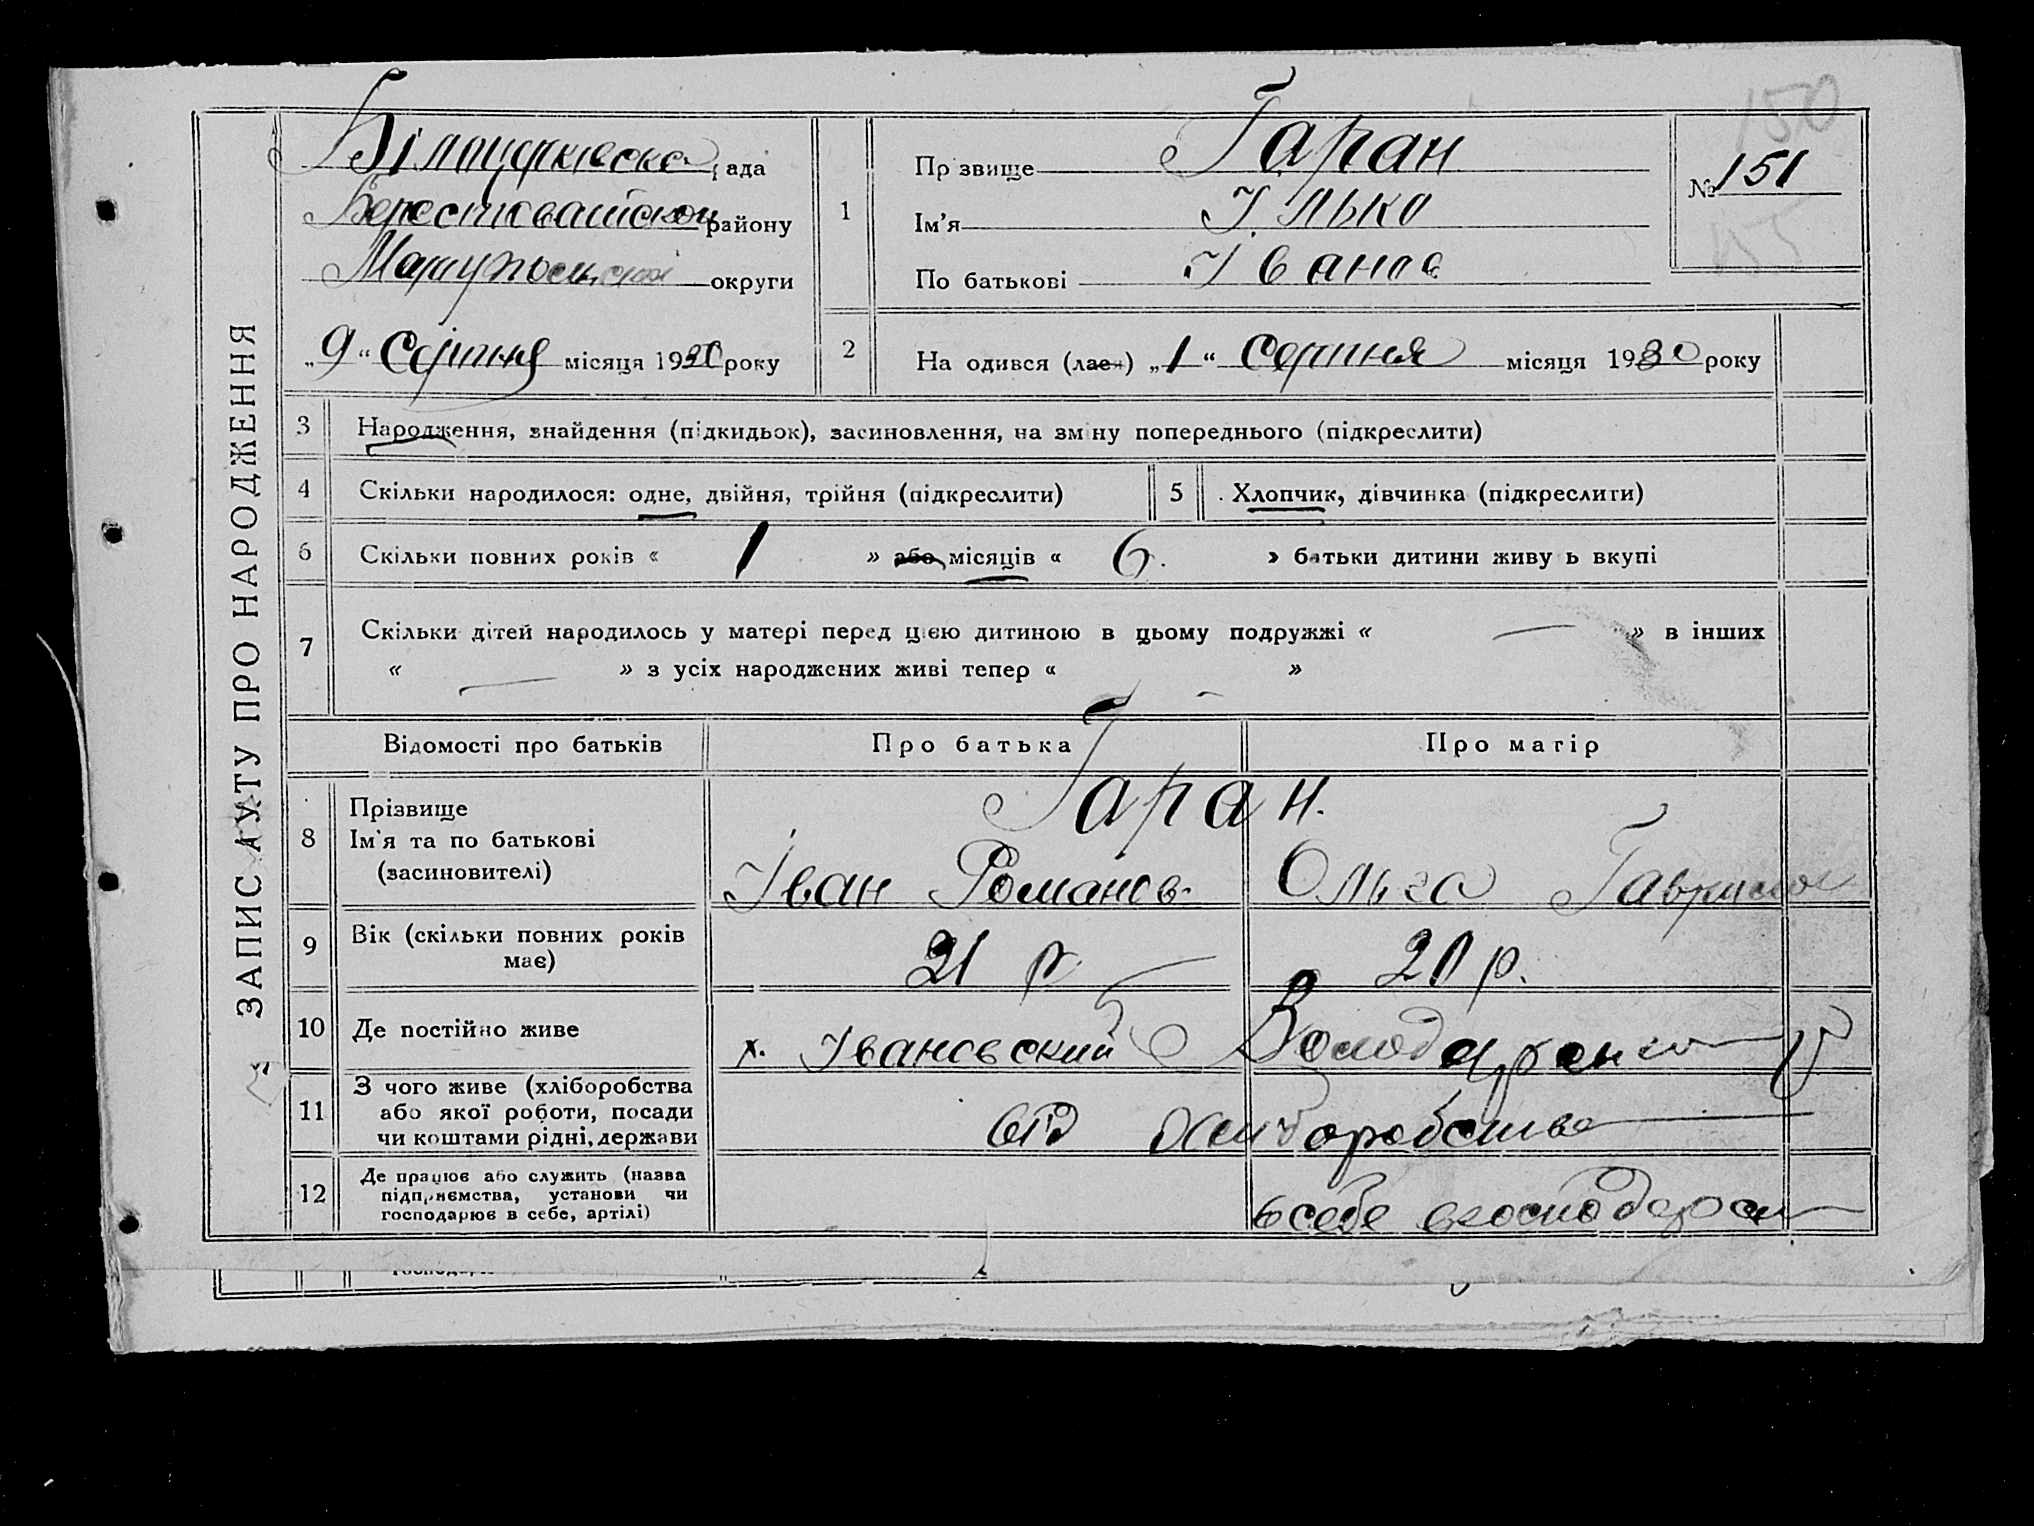 ЗАПИС АКТУ ПРО НАРОДЖЕННЯ
Білоцерківська рада
Берестовайської району
Маріупольської округи
„9“ Серпня місяця 1930 року
1
Прізвище Гаран
Ім'я Ілько
По батькові Іванов
150
№ 151
155
2
На одився (лася) „1“ Серпня місяця 1930 року
3 Народження, знайдення (підкидьок), засиновлення, на зміну попереднього (підкреслити)
4 Скільки народилося: одне, двійня, трійня (підкреслити)
5 Хлопчик, дівчинка (підкреслити)
6 Скільки повних років « 1 » або місяців « 6. » батьки дитини живуть вкупі
7 Скільки дітей народилось у матері перед цією дитиною в цьому подружжі « — » в інших
« — » з усіх народжених живі тепер « »
Відомості про батьків Про батька Про матір
8 Прізвище
Ім'я та по батькові
(засиновителі)
Гаран.
Іван Романов. Ольга Гаврилов
9 Вік (скільки повних років
має)
21 р. 20 р.
10 Де постійно живе
х. Івановский
11 З чого живе (хліборобства
або якої роботи, посади
чи коштами рідні, держави
від хліборобства
12 Де працює або служить (назва
підприємства, установи чи
господарює в себе, артілі)
в себе в господарси